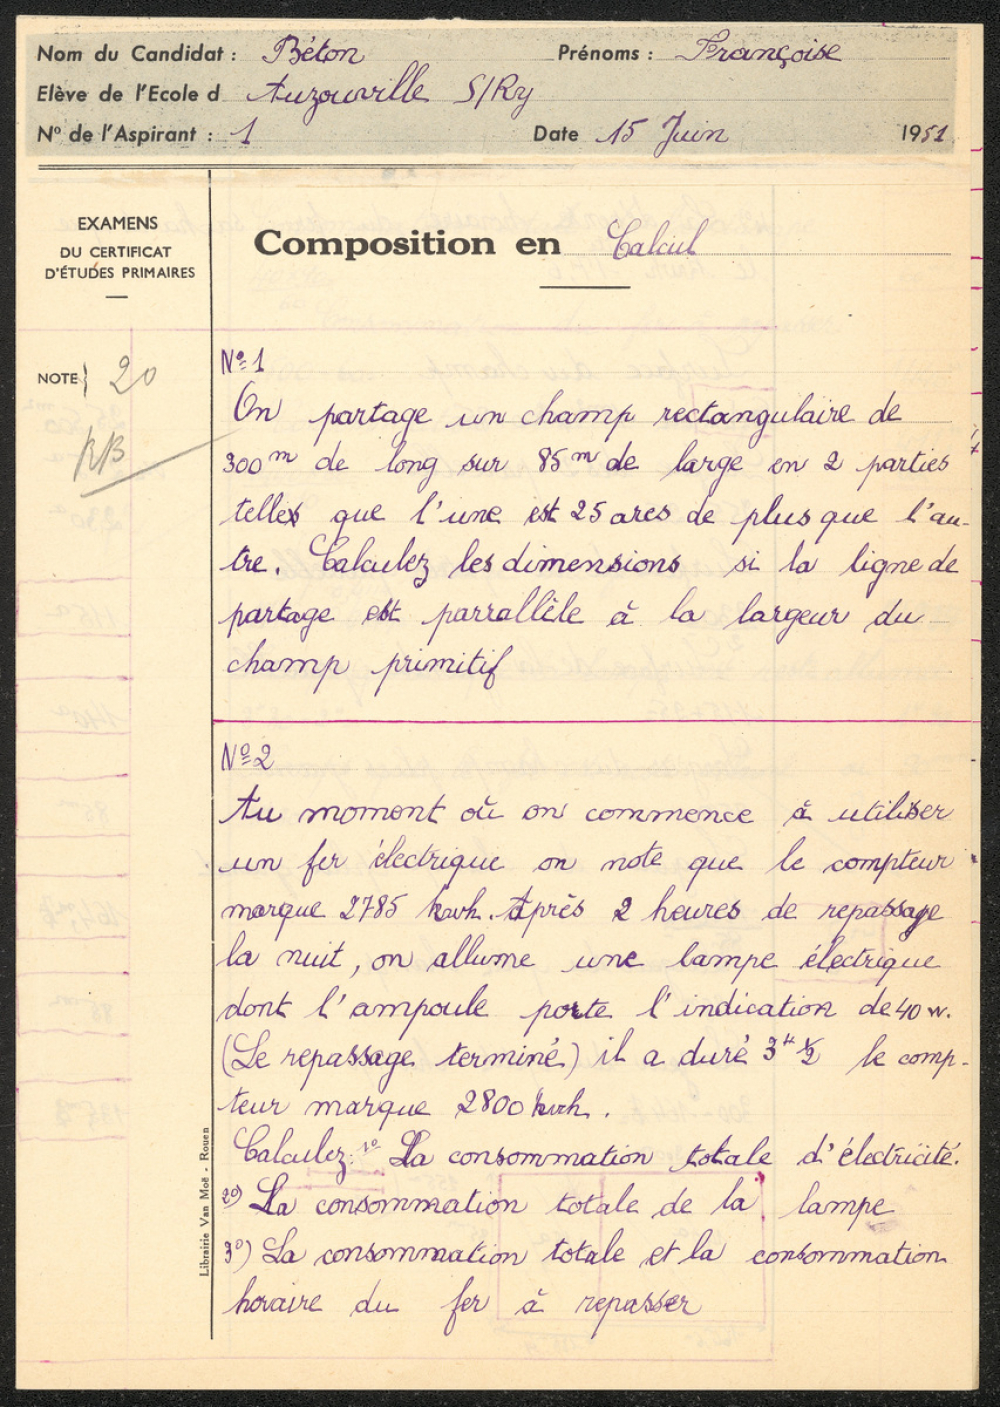 Nom du Candidat : Béton Prénoms : Françoise
Elève de l'Ecole d Auzouville S/Ry
N° de l'Aspirant : 1 Date 15 Juin 1951
EXAMENS
DU CERTIFICAT
D'ÉTUDES PRIMAIRES
Composition en Calcul
NOTE} 20
RB
Nº1
On partage un champ rectangulaire de
300m de long sur 85m de large en 2 parties
telles que l'une est 25 ares de plus que l'au-
tre. Calculez les dimensions si la ligne de
partage est parrallèle à la largeur du
champ primitif
Nº2
Au moment où on commence à utiliser
un fer électrique on note que le compteur
marque 2785 kwh. Après 2 heures de repassage
la nuit, on allume une lampe électrique
dont l'ampoule porte l'indication de 40 w.
(Le repassage terminé) il a duré 3H ½ le comp-
teur marque 2800 kwh.
Calculez : 1º La consommation totale d'électricité.
2º) La consommation totale de la lampe
3º) La consommation totale et la consommation
horaire du fer à repasser
Librairie Van Moë - Rouen